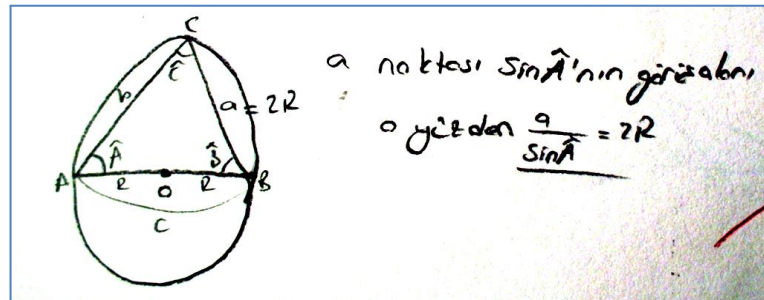 C
Ĉ
b
a = 2R
Â
B̂
A
R
O
R
B
C
a noktası sinÂ'nın görüş alanı
o yüzden a/sinÂ = 2R